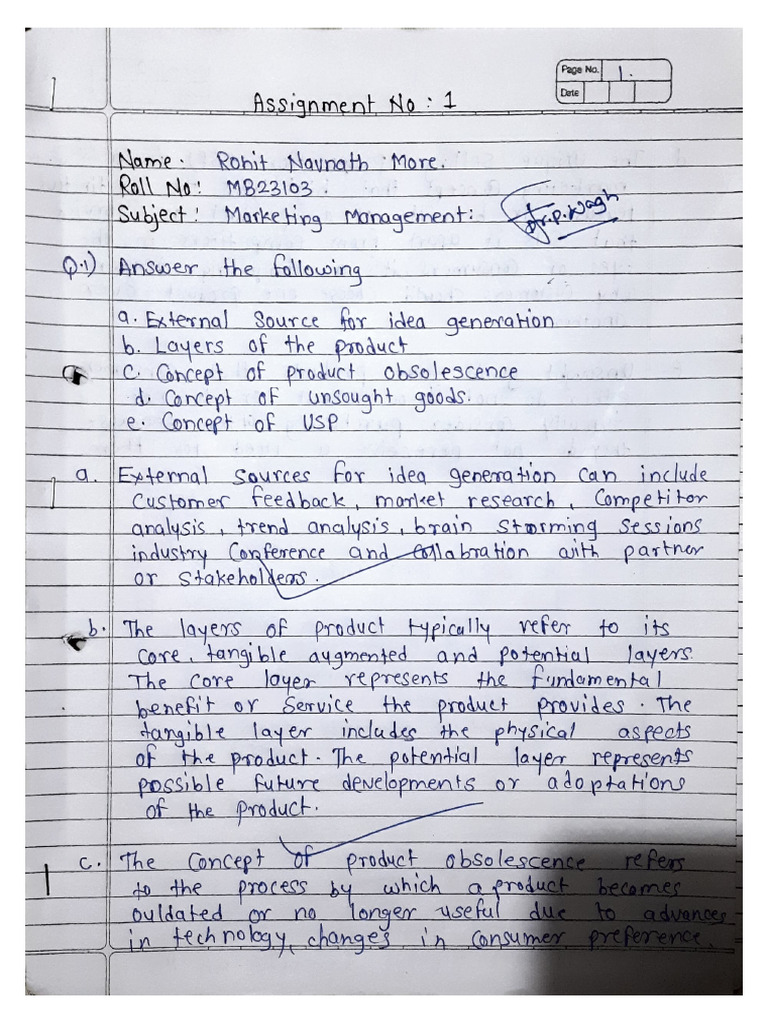 Page No. 1.
Date
Assignment No : 1
Name. Rohit Navnath More.
Roll No: MB23103.
Subject: Marketing Management:
Dr.P.Wagh
Q.1) Answer the following
a. External Source for idea generation
b. Layers of the product
c. Concept of product obsolescence
d. Concept of unsought goods.
e. Concept of USP
a. External Sources for idea generation can include
Customer feedback, market research, Competitor
analysis, trend analysis, brain Storming Sessions
industry Conference and collabration with partner
or Stakeholders.
b. The layers of product typically refer to its
core, tangible augmented and potential layers.
The core layer represents the fundamental
benefit or Service the product provides. The
tangible layer includes the physical aspects
of the product. The potential layer represents
possible future developments or adoptations
of the product.
c. The Concept of product obsolescence refers
to the process by which a product becomes
ouldated or no longer useful due to advances
in technology, changes in consumer preference.